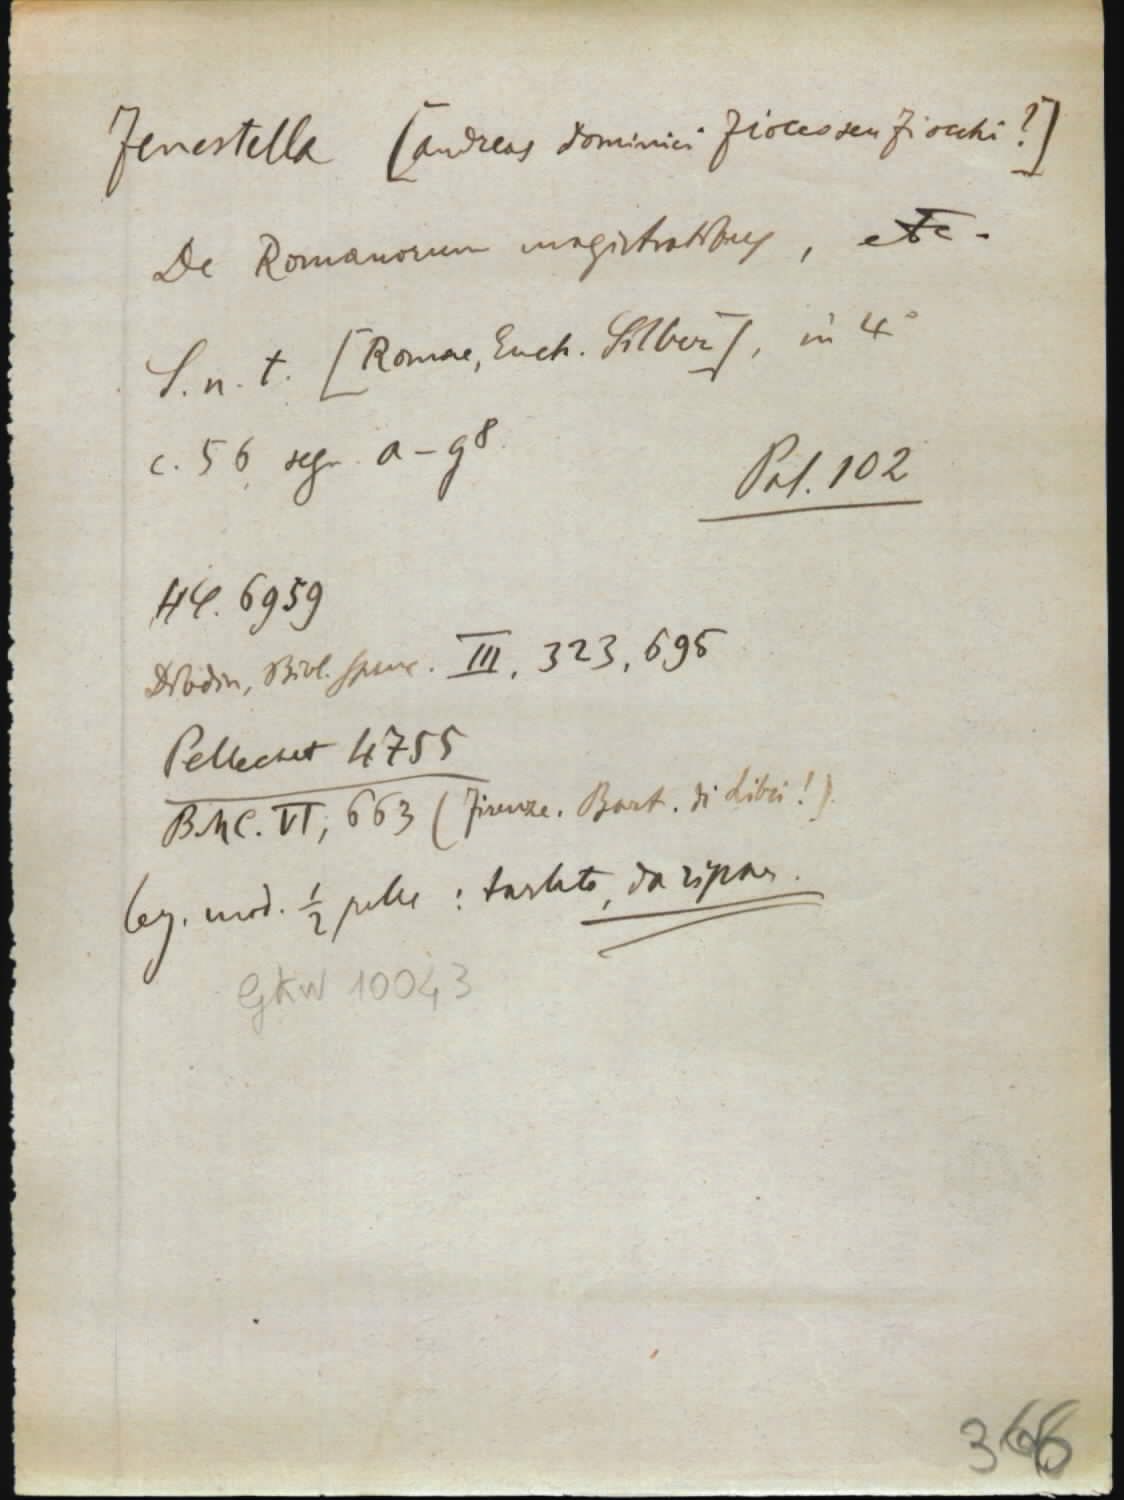 Fenestella [Andreas Dominici Fiocco seu Fiocchi?]
De Romanorum magistratibus, etc.
S. n. t. [Romae, Euch. Silber], in 4°
c. 56, segn. a-g8
Pal. 102
HC. 6959
Dibdin, Bibl. Spenc. III, 323, 695
Pellechet 4755
BMC. VI, 663 (Firenze. Bart. di Libri!)
leg. mod. 1/2 pelle: tarlato, da riparare.
GKW 10043
366